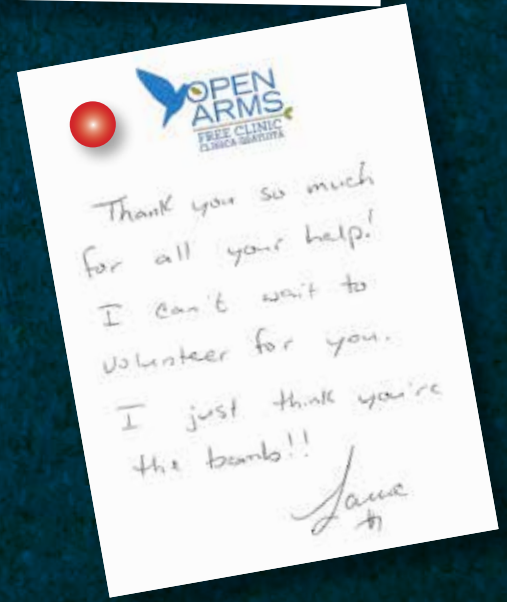 OPEN
ARMS
FREE CLINIC
CLÍNICA GRATUITA
Thank you so much
for all your help!
I can't wait to
volunteer for you.
I just think you're
the bomb!!